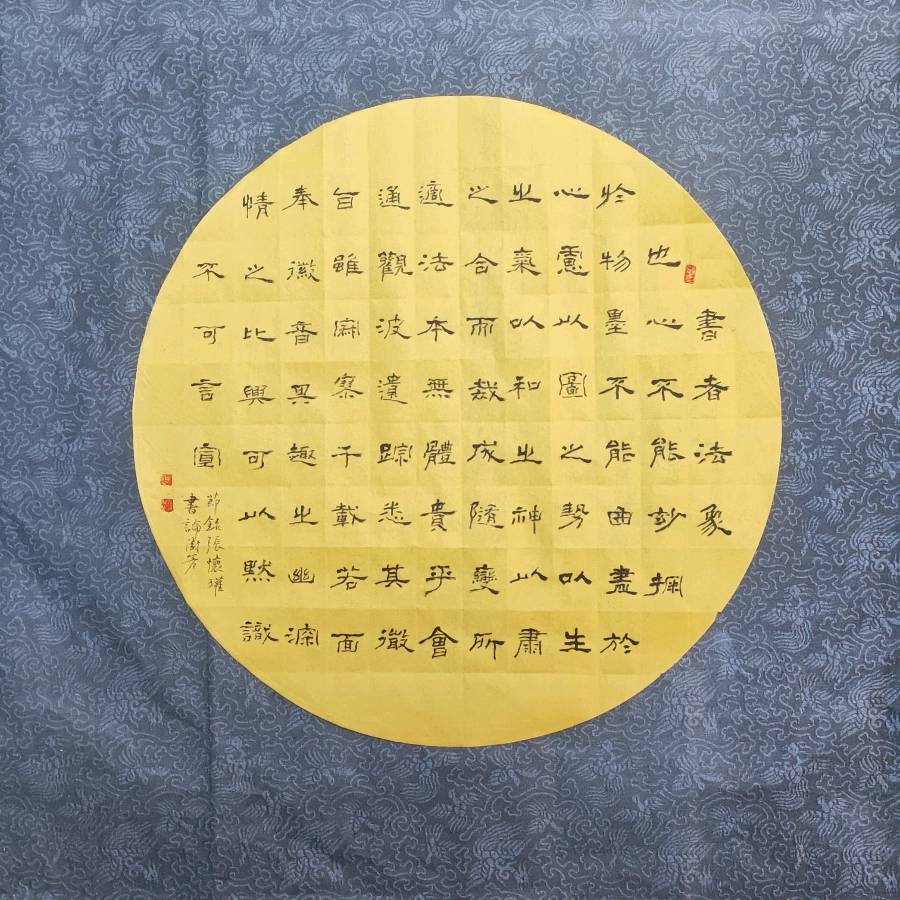 書者法象
也心不能妙探
於物墨不能曲盡於
心慮以圖之勢以生
之氣以和之神以肅
之合而裁成隨變所
適法本無體貴乎會
通觀波遺踪悉其微
旨雖寂寥千載若面
奉徽音其趣之幽深
情之比興可以默識
不可言宣
節錄張懷瓘
書論